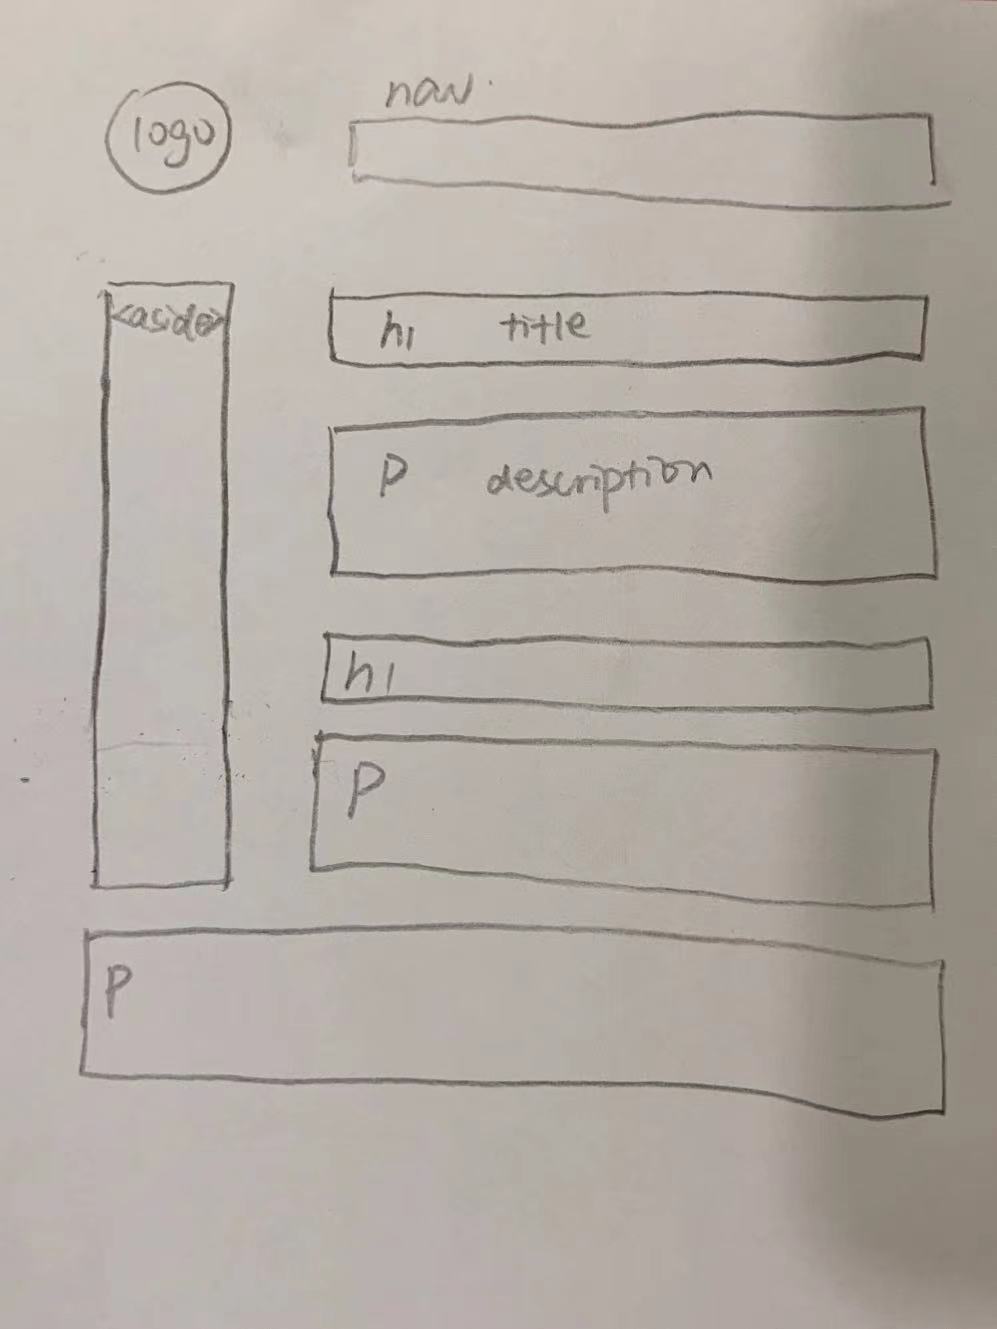 nav.
logo
<aside>
h1 title
P description
h1
P
P